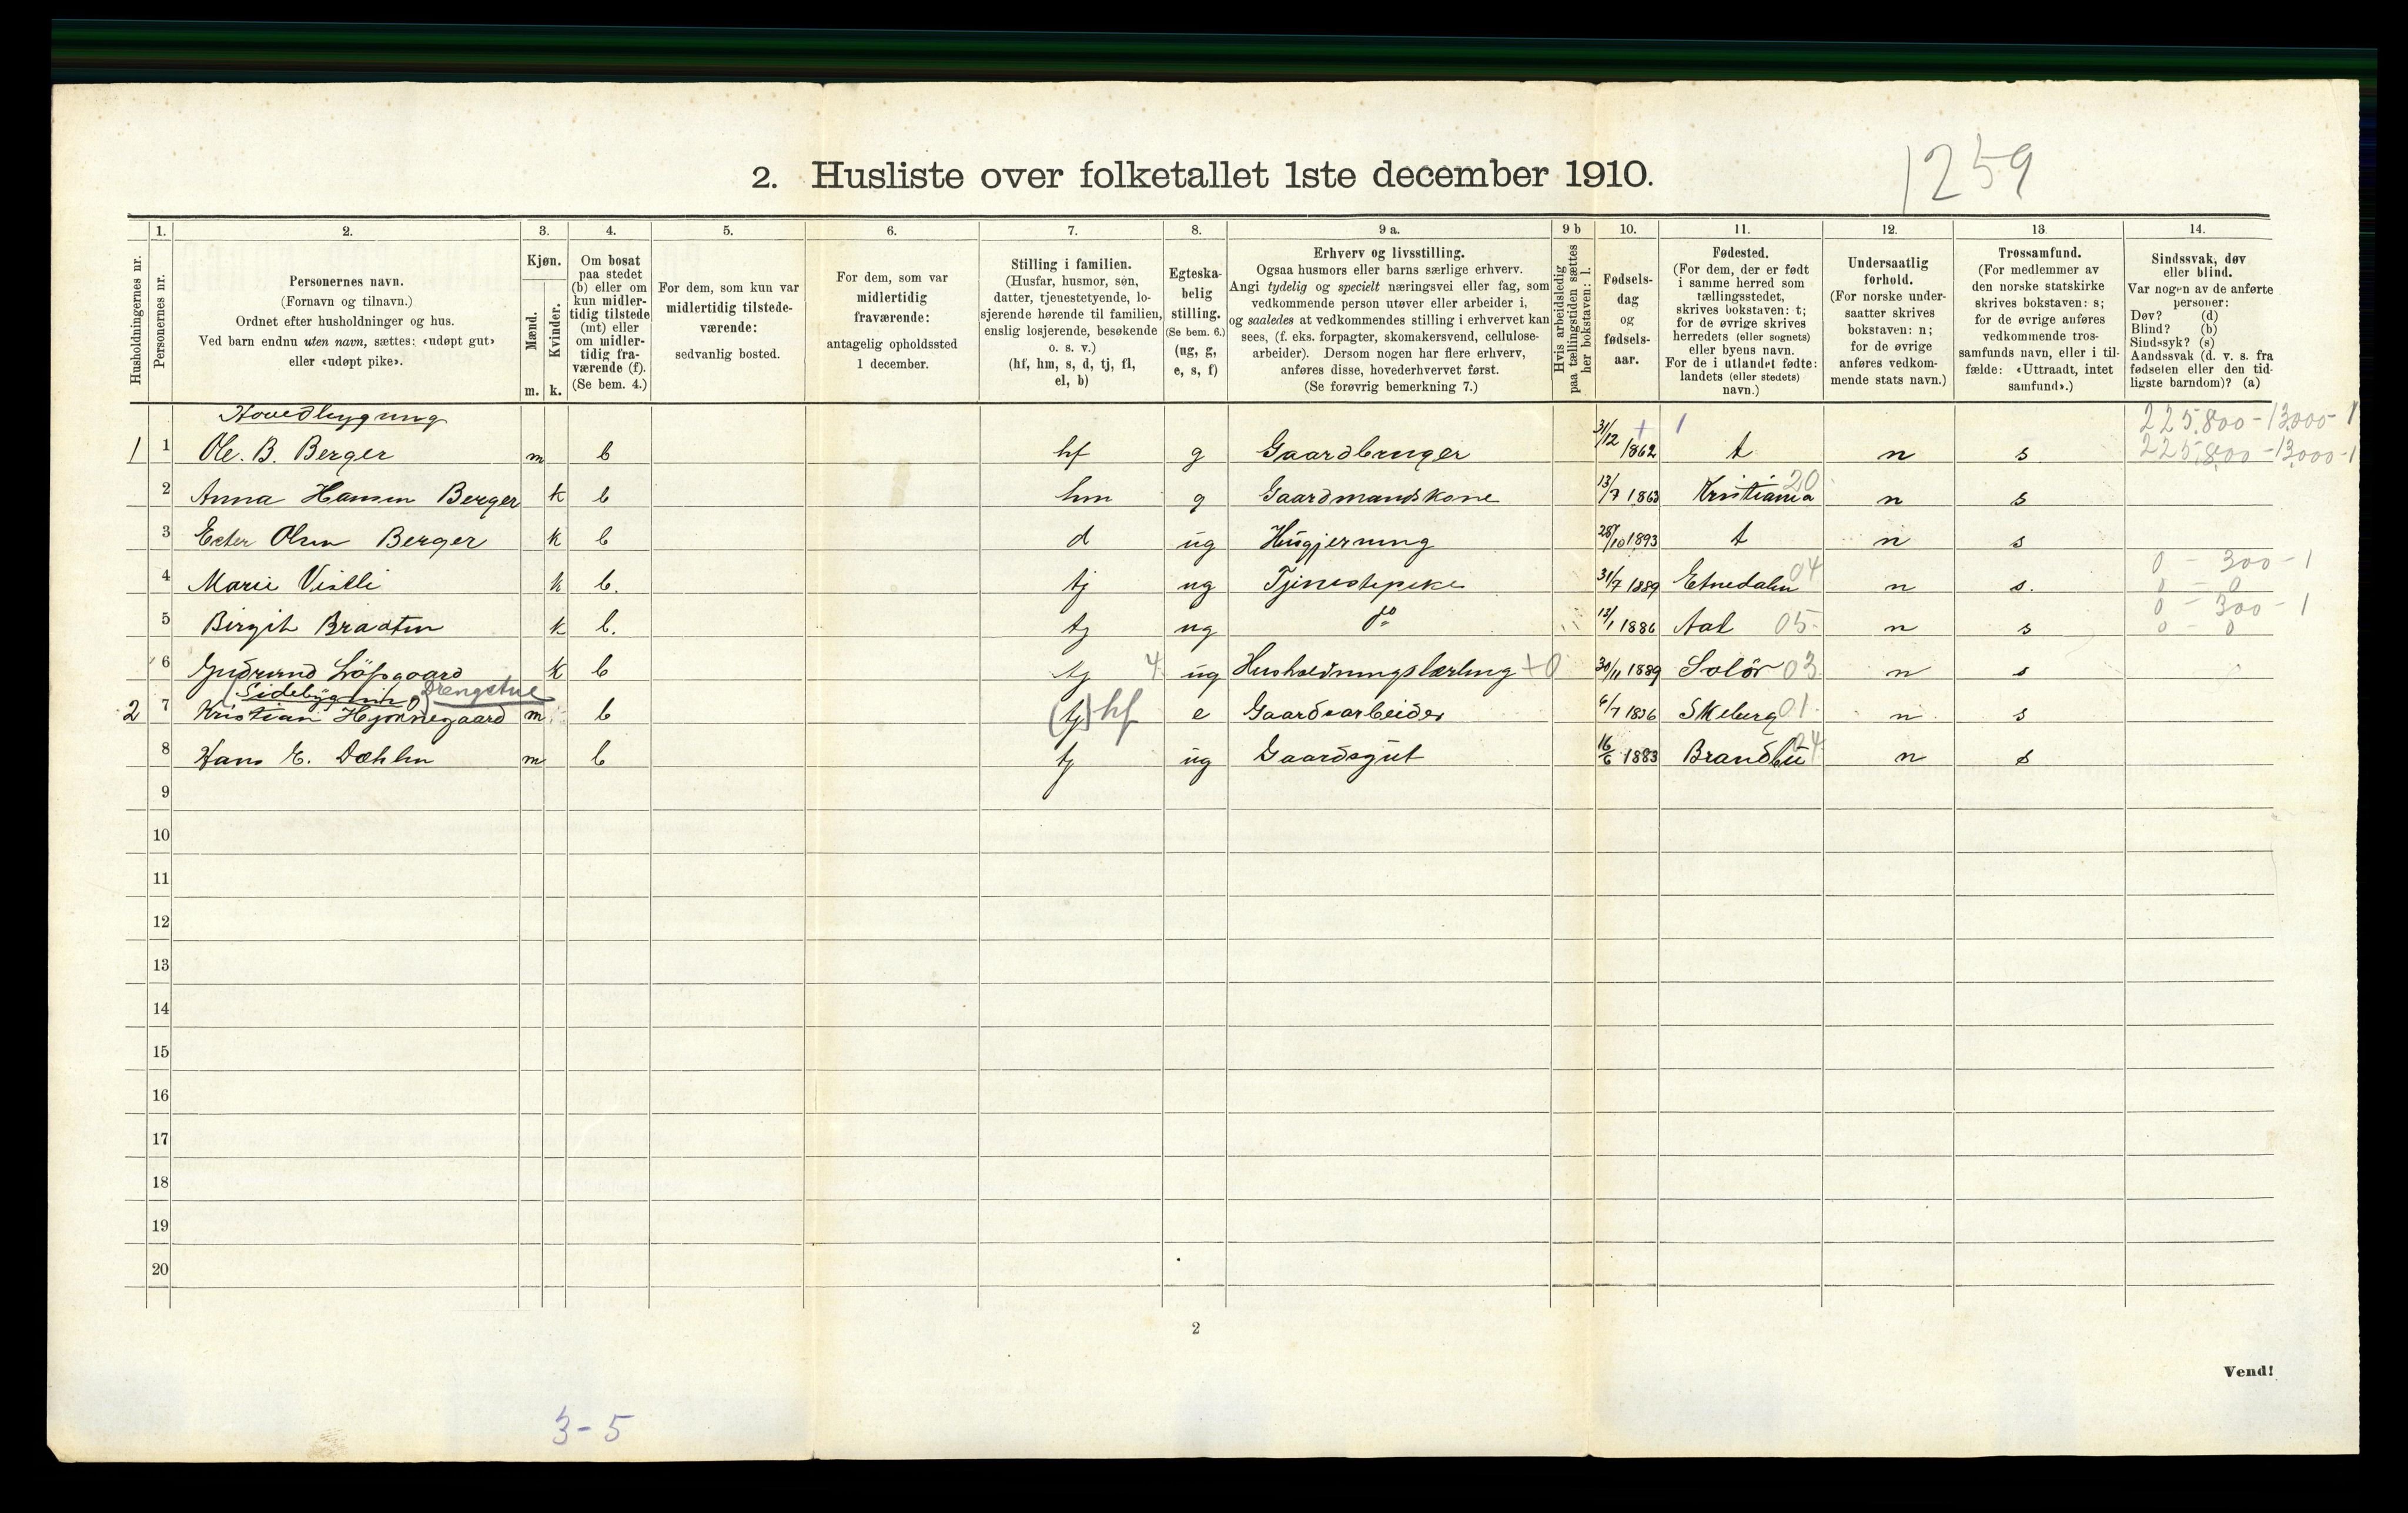 2. Husliste over folketallet 1ste december 1910.
1259
Husholdningernes nr.
1. Personernes nr.
2. Personernes navn.
(Fornavn og tilnavn.)
Ordnet efter husholdninger og hus.
Ved barn endnu uten navn, sættes: «udøpt gut»
eller «udøpt pike».
3. Kjøn.
Mænd. m.
Kvinder. k.
4. Om bosat
paa stedet
(b) eller om
kun midler-
tidig tilstede
(mt) eller
om midler-
tidig fra-
værende (f).
(Se bem. 4.)
5. For dem, som kun var
midlertidig tilstede-
værende:
sedvanlig bosted.
6. For dem, som var
midlertidig
fraværende:
antagelig opholdssted
1 december.
7. Stilling i familien.
(Husfar, husmor, søn,
datter, tjenestetyende, lo-
sjerende hørende til familien,
enslig losjerende, besøkende
o. s. v.)
(hf, hm, s, d, tj, fl,
el, b)
8. Egteska-
belig
stilling.
(Se bem. 6.)
(ug, g,
e, s, f)
9 a. Erhverv og livsstilling.
Ogsaa husmors eller barns særlige erhverv.
Angi tydelig og specielt næringsvei eller fag, som
vedkommende person utøver eller arbeider i,
og saaledes at vedkommendes stilling i erhvervet kan
sees, (f. eks. forpagter, skomakersvend, cellulose-
arbeider). Dersom nogen har flere erhverv,
anføres disse, hovederhvervet først.
(Se forøvrig bemerkning 7.)
9 b Hvis arbeidsledig
paa tællingstiden sættes
her bokstaven: l.
10. Fødsels-
dag
og
fødsels-
aar.
11. Fødested.
(For dem, der er født
i samme herred som
tællingsstedet,
skrives bokstaven: t;
for de øvrige skrives
herredets (eller sognets)
eller byens navn.
For de i utlandet fødte:
landets (eller stedets)
navn.)
12. Undersaatlig
forhold.
(For norske under-
saatter skrives
bokstaven: n;
for de øvrige
anføres vedkom-
mende stats navn.)
13. Trossamfund.
(For medlemmer av
den norske statskirke
skrives bokstaven: s;
for de øvrige anføres
vedkommende tros-
samfunds navn, eller i til-
fælde: «Uttraadt, intet
samfund».)
14. Sindssvak, døv
eller blind.
Var nogen av de anførte
personer:
Døv? (d)
Blind? (b)
Sindssyk? (s)
Aandssvak (d. v. s. fra
fødselen eller den tid-
ligste barndom)? (a)
Hovedbygning 225.800 - 13.000 - 1
1 1 Ole. B. Berger m b hf g Gaardbruger 31/12 1862 t n s 225.800 - 13.000 - 1
2 Anna Hansen Berger k b hm g Gaardmandskone 13/7 1863 Kristiania 20 n s
3 Ester Olsen Berger k b d ug Husgjerning 28/10 1893 t n s
0 - 300 - 1
4 Marie Vistli k b. tj ug Tjenestepike 31/7 1889 Etnedalen 04 n s. 0 - 0
0 - 300 - 1
5 Birgit k b. tj ug do 13/1 1886 Aal 05 n s 0 - 0
6 Gudrund Løfsgaard k b tj 4 ug Husholdningslærling +0 30/11 1889 Solör 03 n s
(Sidebygning) Drengstue
2 7 Kristian Hjønnegaard m b (tj) hf e Gaardsarbeider 6/7 1836 Skeberg 01 n s
8 Hans E. Dæhlen m b tj ug Gaardsgut 16/6 1883 Brandbu 04 n s
9
10
11
12
13
14
15
16
17
18
19
20
2
Vend!
3-5